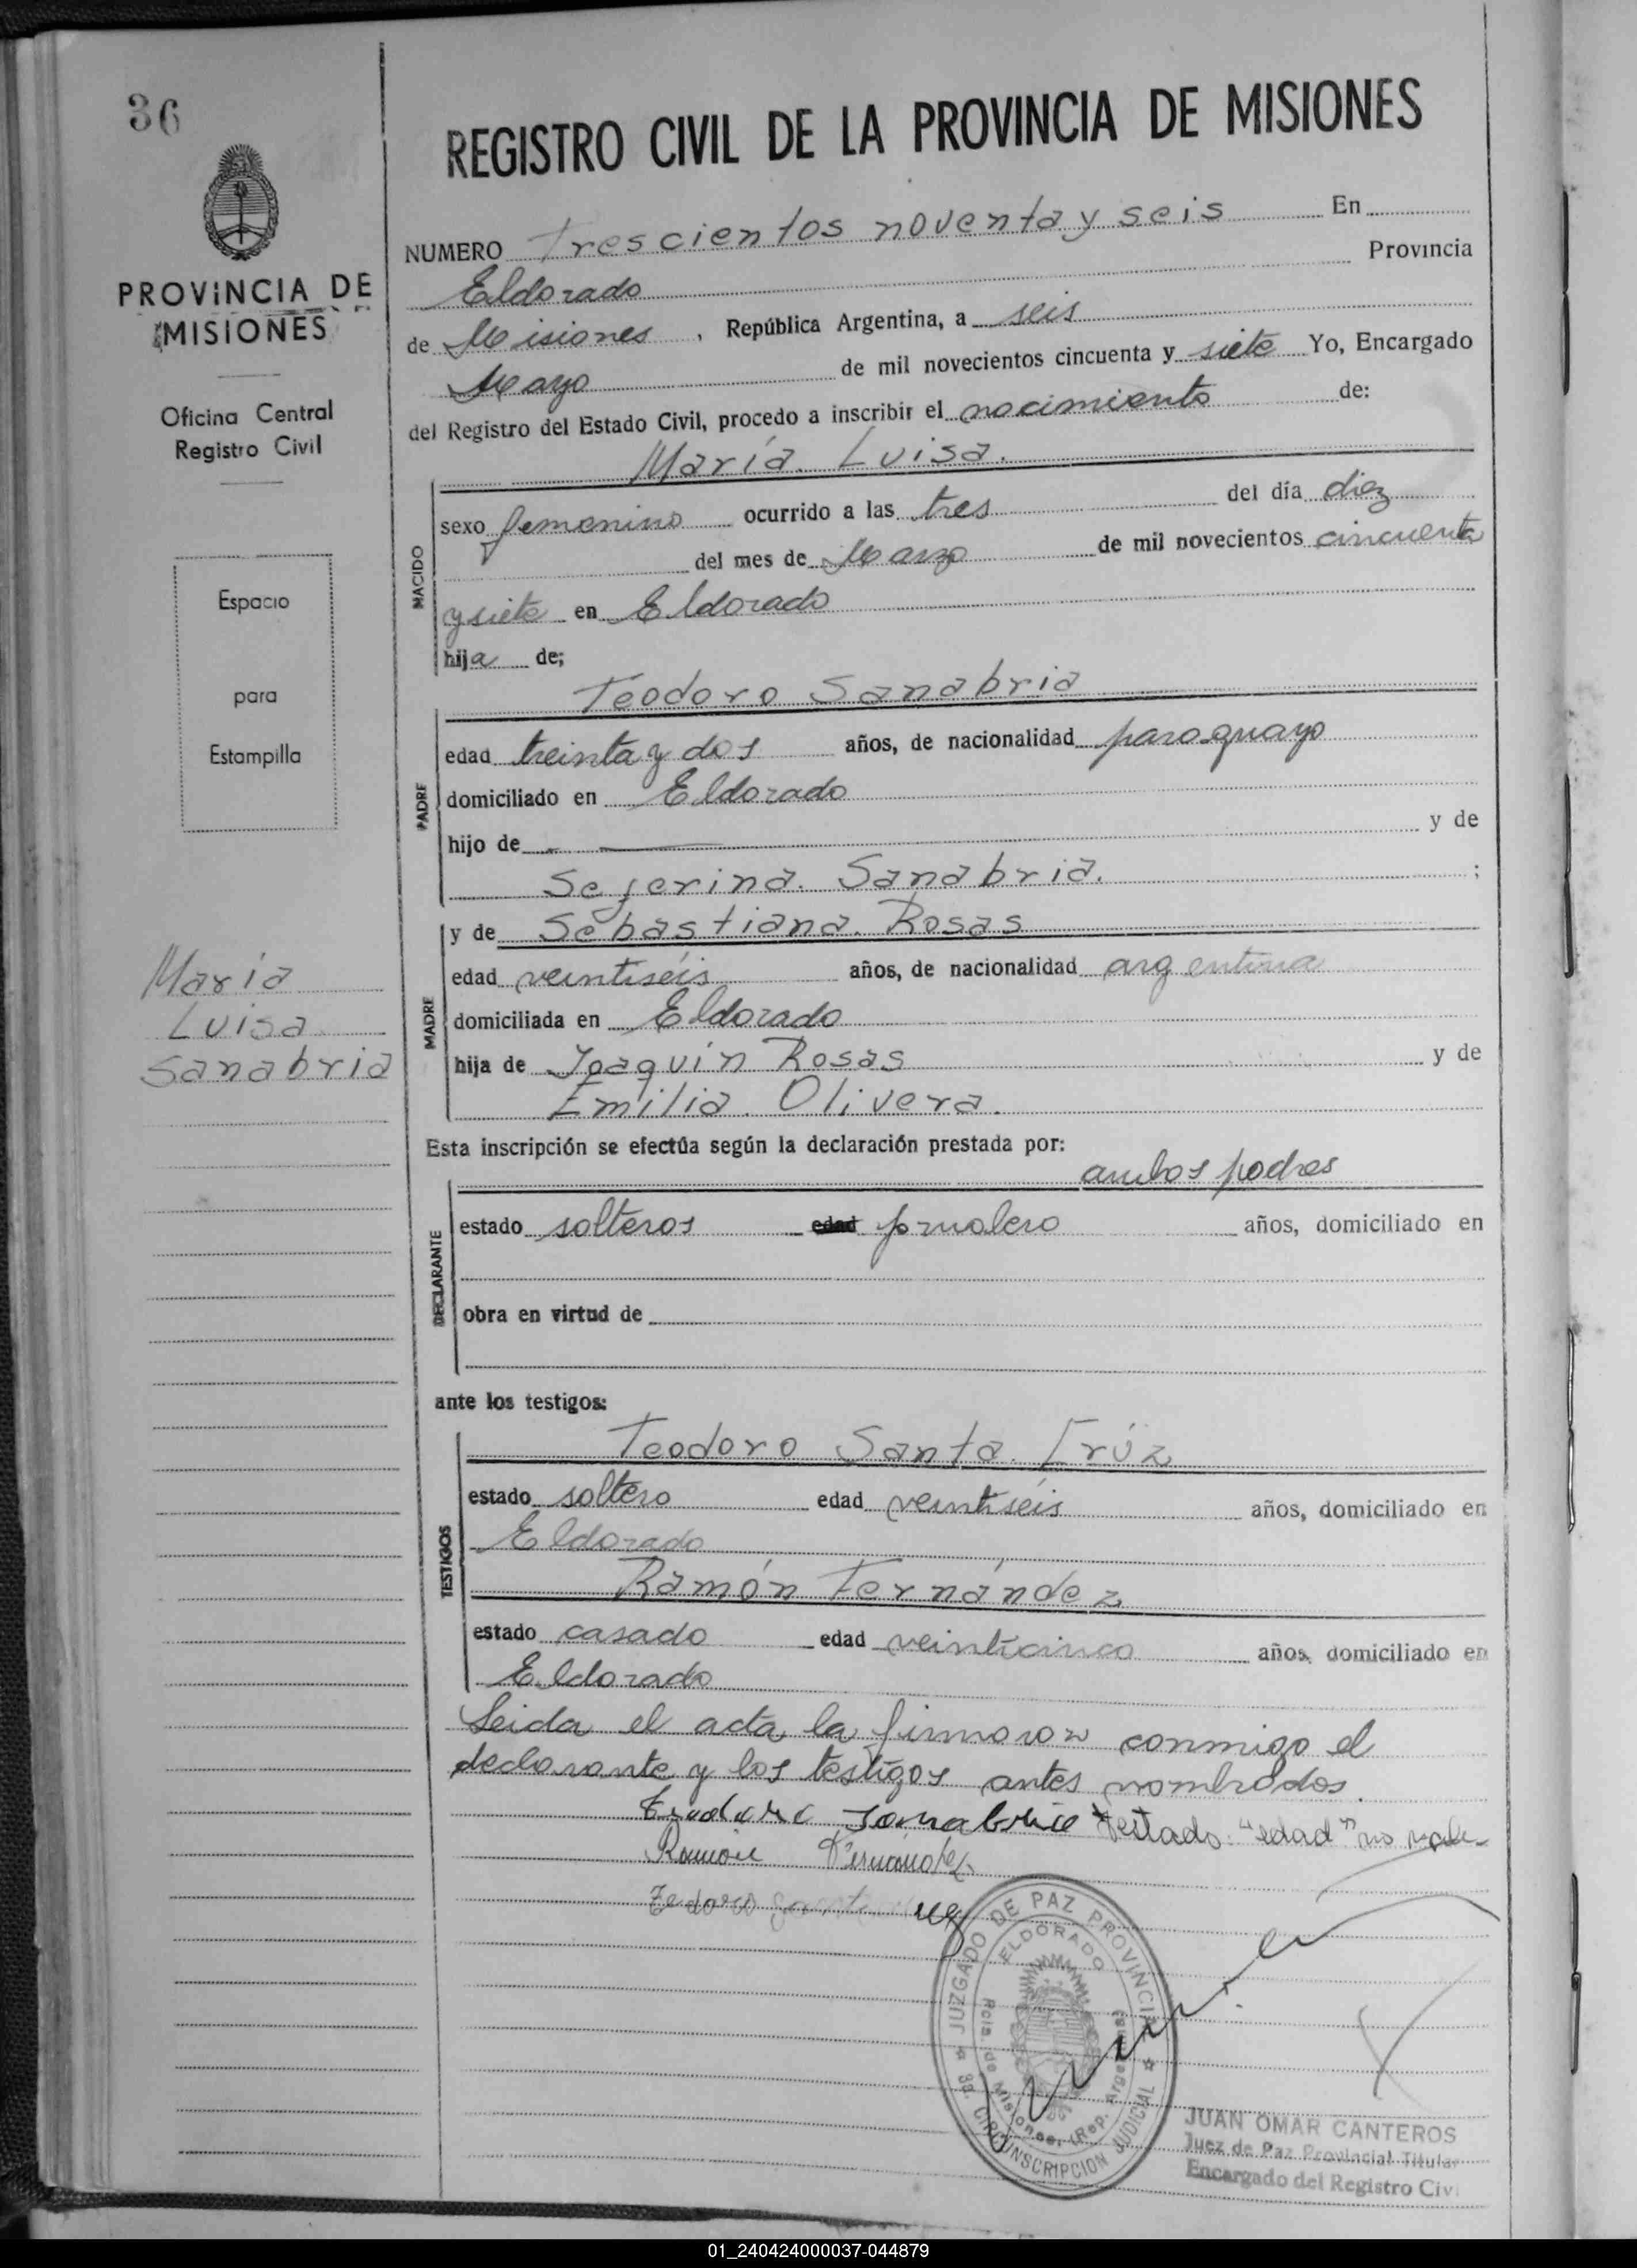 36
PROVINCIA DE
MISIONES
Oficina Central
Registro Civil
Espacio
para
Estampilla
María
Luisa
Sanabria
REGISTRO CIVIL DE LA PROVINCIA DE MISIONES
NUMERO Trescientos noventa y seis En
Eldorado Provincia
de Misiones, República Argentina, a seis
Mayo de mil novecientos cincuenta y siete Yo, Encargado
del Registro del Estado Civil, procedo a inscribir el nacimiento de:
María Luisa.
NACIDO
sexo femenino ocurrido a las tres del día diez
del mes de Marzo de mil novecientos cincuenta
y siete en Eldorado
hija de;
Teodoro Sanabria
PADRE
edad treinta y dos años, de nacionalidad paraguayo
domiciliado en Eldorado
hijo de — y de
Seferina Sanabria. ;
MADRE
y de Sebastiana Rosas
edad veintiséis años, de nacionalidad argentina
domiciliada en Eldorado
hija de Joaquín Rosas y de
Emilia Olivera.
Esta inscripción se efectúa según la declaración prestada por:
ambos padres
DECLARANTE
estado solteros edad jornalero años, domiciliado en
obra en virtud de
ante los testigos:
TESTIGOS
Teodoro Santa Crúz
estado soltero edad veintiséis años, domiciliado en
Eldorado
Ramón Fernández
estado casado edad veinticinco años, domiciliado en
Eldorado
Leida el acta la firmaron conmigo el
declarante y los testigos antes nombrados.
Sanabria Testado: "edad" no vale
Ramón Fernandez
JUZGADO DE PAZ PROVINCIAL
ELDORADO
Pcia. de Misiones (Rep. Argentina)
3a. CIRCUNSCRIPCION JUDICIAL
JUAN OMAR CANTEROS
Juez de Paz Provincial Titular
Encargado del Registro Civi
01_240424000037-044879